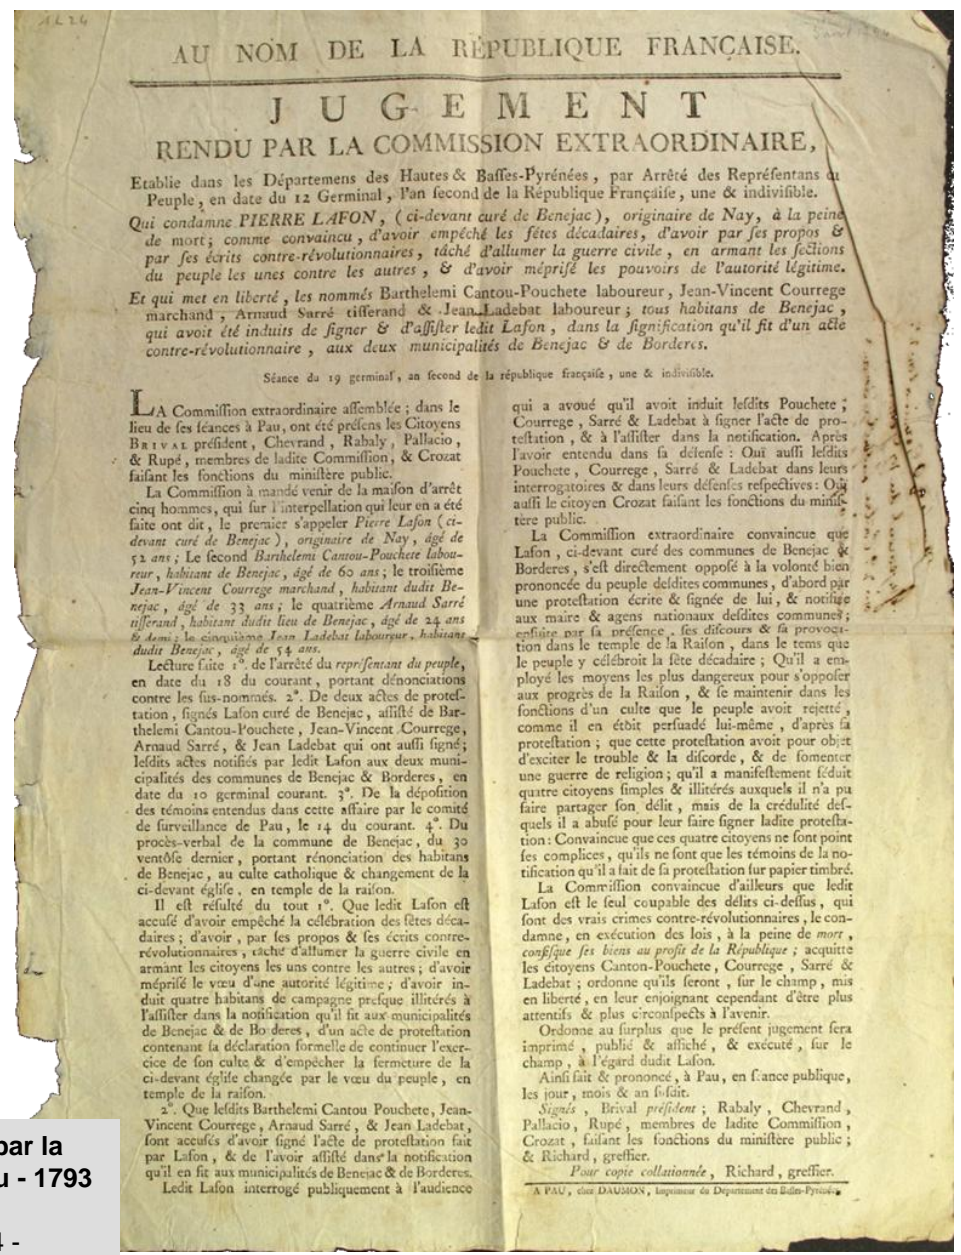 1 L 24
AU NOM DE LA RÉPUBLIQUE FRANÇAISE.
JUGEMENT
RENDU PAR LA COMMISSION EXTRAORDINAIRE,
Etablie dans les Départemens des Hautes & Baſſes-Pyrénées, par Arrêté des Repréſentans
Peuple, en date du 12 Germinal, l'an ſecond de la République Françaiſe, une & indiviſible.
Qui condamne PIERRE LAFON, (ci-devant curé de Benejac), originaire de Nay, à la peine
de mort; comme convaincu, d'avoir empêché les fêtes décadaires, d'avoir par ſes propos &
par ſes écrits contre-révolutionnaires, tâché d'allumer la guerre civile, en armant les ſections
du peuple les unes contre les autres, & d'avoir mépriſé les pouvoirs de l'autorité légitime.
Et qui met en liberté, les nommés Barthelemi Cantou-Pouchete laboureur, Jean-Vincent Courrege
marchand, Arnaud Sarré tiſſerand & Jean Ladebat laboureur; tous habitans de Benejac,
qui avoit été induits de ſigner & d'aſſiſter ledit Lafon, dans la ſignification qu'il fit d'un acte
contre-révolutionnaire, aux deux municipalités de Benejac & de Borderes.
Séance du 19 germinal, an ſecond de la république françaiſe, une & indiviſible.
LA Commiſſion extraordinaire aſſemblée; dans le
lieu de ſes ſéances à Pau, ont été préſens les Citoyens
BRIVAL préſident, Chevrand, Rabaly, Pallacio,
& Rupé, membres de ladite Commiſſion, & Crozat
faiſant les fonctions du miniſtère public.
La Commiſſion à mandé venir de la maiſon d'arrêt
cinq hommes, qui ſur l'interpellation qui leur en a été
faite ont dit, le premier s'appeler Pierre Lafon (ci-
devant curé de Benejac), originaire de Nay, âgé de
52 ans; Le ſecond Barthelemi Cantou-Pouchete labou-
reur, habitant de Benejac, âgé de 60 ans; le troiſième
Jean-Vincent Courrege marchand, habitant dudit Be-
nejac, âgé de 33 ans; le quatrième Arnaud Sarré
tiſſerand, habitant dudit lieu de Benejac, âgé de 24 ans
& demi; le cinquième Jean Ladebat laboureur, habitant
dudit Benejac, âgé de 54 ans.
Lecture faite 1°. de l'arrêté du repréſentant du peuple,
en date du 18 du courant, portant dénonciations
contre les ſus-nommés. 2°. De deux actes de proteſ-
tation, ſignés Lafon curé de Benejac, aſſiſté de Bar-
thelemi Cantou-Pouchete, Jean-Vincent Courrege,
Arnaud Sarré, & Jean Ladebat qui ont auſſi ſigné;
leſdits actes notifiés par ledit Lafon aux deux muni-
cipalités des communes de Benejac & Borderes, en
date du 10 germinal courant. 3°. De la dépoſition
des témoins entendus dans cette affaire par le comité
de ſurveillance de Pau, le 14 du courant. 4°. Du
procès-verbal de la commune de Benejac, du 30
ventôſe dernier, portant rénonciation des habitans
de Benejac, au culte catholique & changement de la
ci-devant égliſe, en temple de la raiſon.
Il eſt réſulté du tout 1°. Que ledit Lafon eſt
accuſé d'avoir empêché la célébration des fêtes déca-
daires; d'avoir, par ſes propos & ſes écrits contre-
révolutionnaires, tâché d'allumer la guerre civile en
armant les citoyens les uns contre les autres; d'avoir
mépriſé le vœu d'une autorité légitime; d'avoir in-
duit quatre habitans de campagne preſque illitérés à
l'aſſiſter dans la notification qu'il fit aux municipalités
de Benejac & de Borderes, d'un acte de proteſtation
contenant ſa déclaration formelle de continuer l'exer-
cice de ſon culte & d'empêcher la fermeture de la
ci-devant égliſe changée par le vœu du peuple, en
temple de la raiſon.
2°. Que leſdits Barthelemi Cantou Pouchete, Jean-
Vincent Courrege, Arnaud Sarré, & Jean Ladebat,
ſont accuſés d'avoir ſigné l'acte de proteſtation fait
par Lafon, & de l'avoir aſſiſté dans la notification
qu'il en fit aux municipalités de Benejac & de Borderes.
Ledit Lafon interrogé publiquement à l'audience
qui a avoué qu'il avoit induit leſdits Pouchete,
Courrege, Sarré & Ladebat à ſigner l'acte de pro-
teſtation, & à l'aſſiſter dans la notification. Après
l'avoir entendu dans ſa défenſe: Oui auſſi leſdits
Pouchete, Courrege, Sarré & Ladebat dans leurs
interrogatoires & dans leurs défenſes reſpectives: Oui
auſſi le citoyen Crozat faiſant les fonctions du miniſ-
tère public.
La Commiſſion extraordinaire convaincue que
Lafon, ci-devant curé des communes de Benejac &
Borderes, s'eſt directement oppoſé à la volonté bien
prononcée du peuple deſdites communes, d'abord par
une proteſtation écrite & ſignée de lui, & notifiée
aux maire & agens nationaux deſdites communes;
enſuite par ſa préſence, ſes diſcours & ſa provoca-
tion dans le temple de la Raiſon, dans le tems que
le peuple y célébroit la fête décadaire; Qu'il a em-
ployé les moyens les plus dangereux pour s'oppoſer
aux progrès de la Raiſon, & ſe maintenir dans les
fonctions d'un culte que le peuple avoit rejetté,
comme il en étoit perſuadé lui-même, d'après ſa
proteſtation; que cette proteſtation avoit pour objet
d'exciter le trouble & la diſcorde, & de fomenter
une guerre de religion; qu'il a manifeſtement ſéduit
quatre citoyens ſimples & illitérés auxquels il n'a pu
faire partager ſon délit, mais de la crédulité deſ-
quels il a abuſé pour leur faire ſigner ladite proteſta-
tion: Convaincue que ces quatre citoyens ne ſont point
ſes complices, qu'ils ne ſont que les témoins de la no-
tification qu'il a fait de ſa proteſtation ſur papier timbré.
La Commiſſion convaincue d'ailleurs que ledit
Lafon eſt le ſeul coupable des délits ci-deſſus, qui
ſont des vrais crimes contre-révolutionnaires, le con-
damne, en exécution des lois, à la peine de mort,
confiſque ſes biens au profit de la République; acquitte
les citoyens Canton-Pouchete, Courrege, Sarré &
Ladebat; ordonne qu'ils ſeront, ſur le champ, mis
en liberté, en leur enjoignant cependant d'être plus
attentifs & plus circonſpects à l'avenir.
Ordonne au ſurplus que le préſent jugement ſera
imprimé, publié & affiché, & exécuté, ſur le
champ, à l'égard dudit Lafon.
Ainſi fait & prononcé, à Pau, en ſéance publique,
les jour, mois & an ſuſdit.
Signés, Brival préſident; Rabaly, Chevrand,
Pallacio, Rupé, membres de ladite Commiſſion,
Crozat, faiſant les fonctions du miniſtère public;
& Richard, greffier.
Pour copie collationnée, Richard, greffier.
A PAU, chez DAUMON, Imprimeur du Département des Baſſes-Pyrénées.
par la
u - 1793
4 -